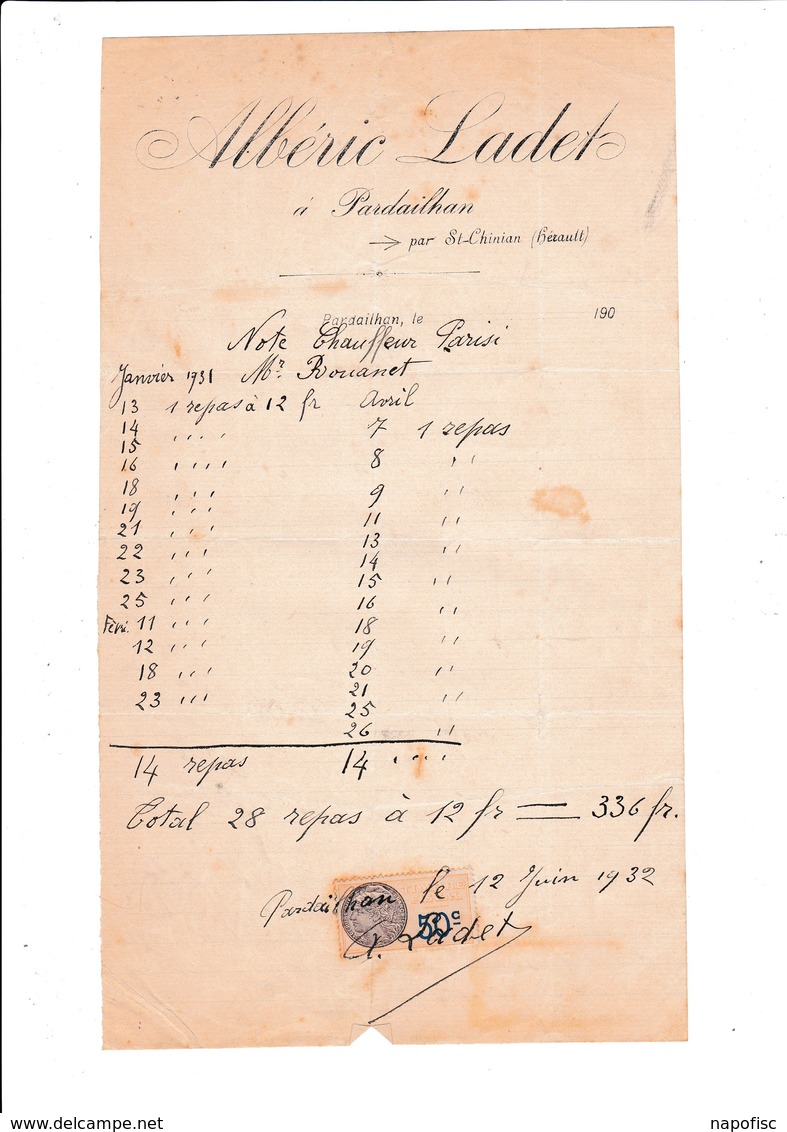 Albéric Ladet
à Pardailhan
par St-Chinian (Hérault)
Pardailhan, le 190
Note Chauffeur Parisi
Janvier 1931 Mr. Rouanet
13 1 repas à 12 fr Avril
14 " " 7 1 repas
15
16 " " 8 "
18 " " 9 "
19 " " 11 "
21 " " 13 "
22 " " 14
23 " " 15 "
25 " " 16 "
Févr. 11 " " 18 "
12 " " 19
18 " " 20 "
23 " " 21 "
25
26 "
14 repas 14 " "
Total 28 repas à 12 fr = 336 fr.
Pardailhan le 12 Juin 1932
50c
A. Ladet
napofisc